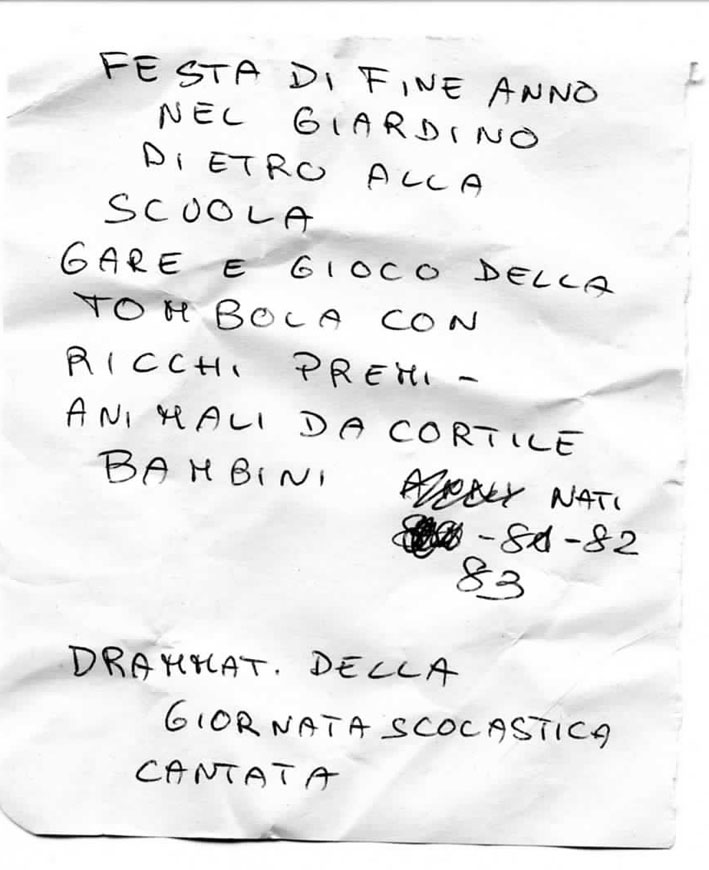 FESTA DI FINE ANNO
NEL GIARDINO
DIETRO ALLA
SCUOLA
GARE E GIOCO DELLA
TOMBOLA CON
RICCHI PREMI -
ANIMALI DA CORTILE
BAMBINI NATI
-81-82
83
DRAMMAT. DELLA
GIORNATA SCOLASTICA
CANTATA